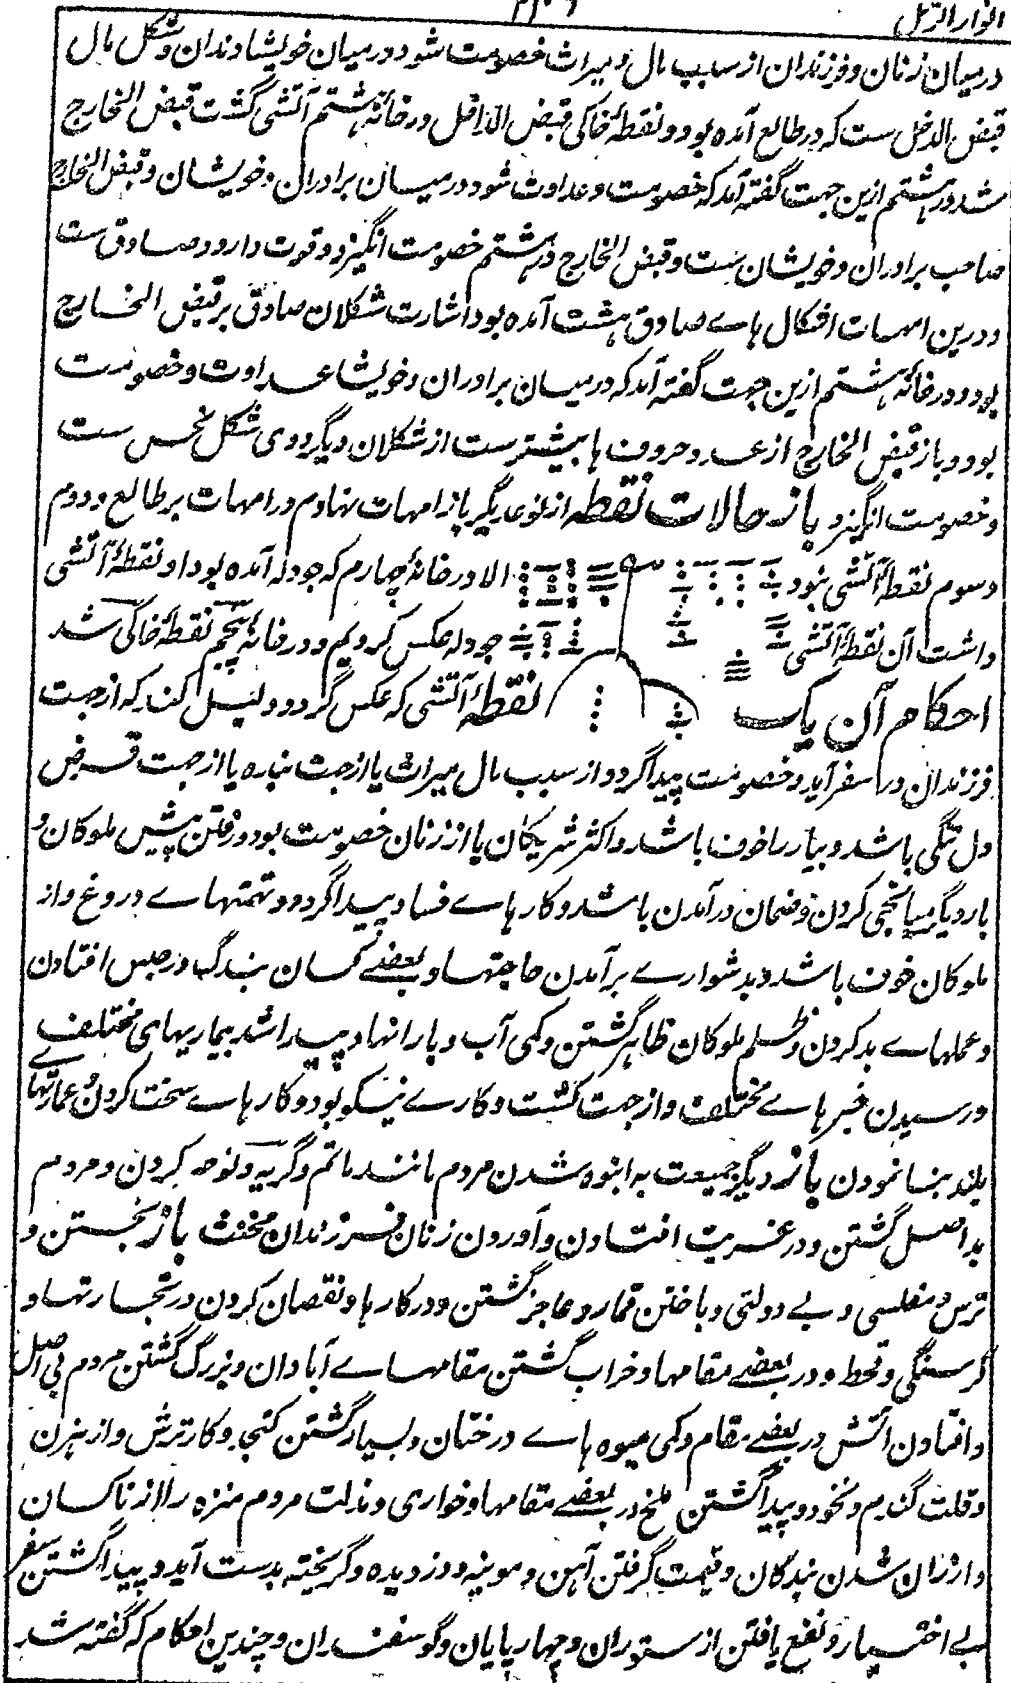 انوار الرمل
درمیان زنان و فرزندان از سبب مال و میراث خصومت شود و درمیان خویشاوندان و شکل مال
قبض الداخل ست که در طالع آمده بود و نقطهٔ خاکی قبض الداخل در خانهٔ هشتم آتشی گشت قبض الخارج
شد در هشتم ازین جهت گفته آمد که خصومت و عداوت شود درمیان برادران و خویشان و قبض الخارج
صاحب برادران و خویشان ست و قبض الخارج در هشتم خصومت انگیزد و قوت دارد و صادق ست
و درین امهات اشکال هاے صادق هشت آمده بود اشارت شکلان صادق بر قبض الخارج
بود و در خانهٔ هشتم ازین جهت گفته آمد که درمیان برادران و خویشا عداوت و خصومت
بود و باز قبض الخارج از عدد و حروف ها بیشتر ست از شکلان دیگر و وی شکل نحس ست
و خصومت انگیزد باز حالات نقطه از نوع دیگر باز امهات نهادم در امهات بر طالع و دوم
و سوم نقطهٔ آتشی نبود الا در خانهٔ چهارم که جودله آمده بود او نقطهٔ آتشی
داشت آن نقطهٔ آتشی جودله عکس کردیم و در خانهٔ پنجم نقطهٔ خاکی شد
احکام آن یک نقطهٔ آتشی که عکس گردد دلیل کند که از جهت
فرزندان در سفر آید و خصومت پیدا گردد از سبب مال میراث یا از جهت نباره یا از جهت قرض
دل تنگی باشد و بیمار را خوف باشد و اکثر شریکان یا از زنان خصومت بود و رفتن پیش ملوکان و
بار دیگر میانجی کردن و ضمان در آمدن باشد و کارهاے فساد پیدا گردد و تهمتهاے دروغ و از
ملوکان خوف باشد و بدشوارے برآمدن حاجتها و بعضے کسان بندگ در حبس افتادن
و عملهاے بد کردن و ظلم ملوکان ظاهر گشتن و کمی آب و بارانها و پیدا شد بیماریهای مختلف
و رسیدن خبرهاے مختلف و از جهت کشت و کارے نیکو بود و کارهاے سخت کردن و عمارتهاے
بلند بنا نمودن باز دیگر جمیعت به انبوه شدن مردم مانند ماتم و گریه و نوحه کردن و مردم
بد اصل گشتن و در غربت افتادن و آوردن زنان فرزندان مخنث باز بجستن و
ترس و مفلسی و بے دولتی و باختن قمار و عاجز گشتن و در کارها و نقصان کردن در تجارتها و
گرسنگی و قحط و در بعضے مقامها و خراب گشتن مقامهاے آبادان و بزرگ گشتن مردم بی اصل
و افتادن آتش در بعضے مقام و کمی میوه هاے درختان و بسیار گشتن کنجد و کار ترش و ارزن
و قلت گندم و نخود و پیدا گشتن ملخ در بعضے مقامها و خواری و مذلت مردم منزه را از ناکسان
و ارزان شدن بندگان و قیمت گرفتن آهن و موینه و دزدیده و گریخته بدست آید و پیدا گشتن سفر
بے اختیار و نفع یافتن از ستوران و چهارپایان و گوسفندان و چندین احکام که گفته شد